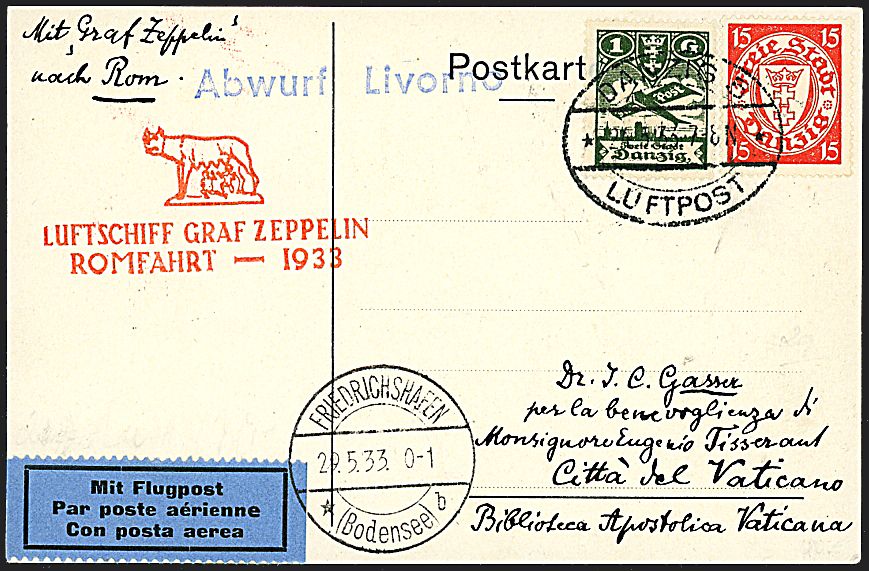 Mit Graf Zeppelin
nach Rom.
Abwurf Livorno
Postkart
1 G
Post
Freie Stadt
Danzig
15 15
Freie Stadt
Danzig
15 15
LUFTPOST
LUFTSCHIFF GRAF ZEPPELIN
ROMFAHRT — 1933
FRIEDRICHSHAFEN
29.5.33. 0-1
(Bodensee) b
Dr. J. C. Gasser
per la benevoglienza di
Monsignore Eugenio Tisserant
Città del Vaticano
Biblioteca Apostolica Vaticana
Mit Flugpost
Par poste aérienne
Con posta aerea